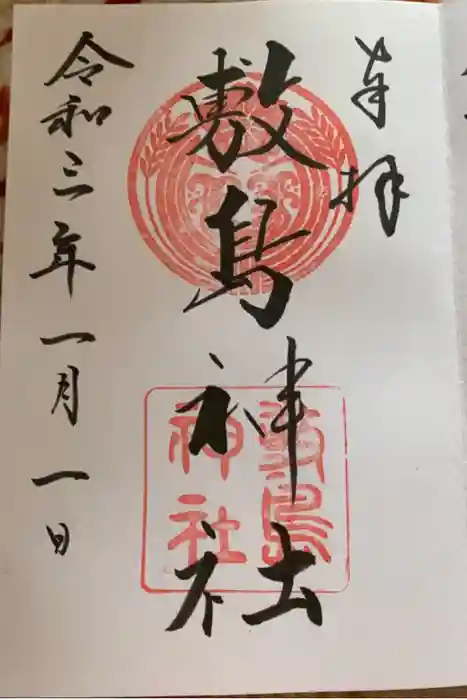 奉拝
敷島神社
敷島
神社
令和三年一月一日